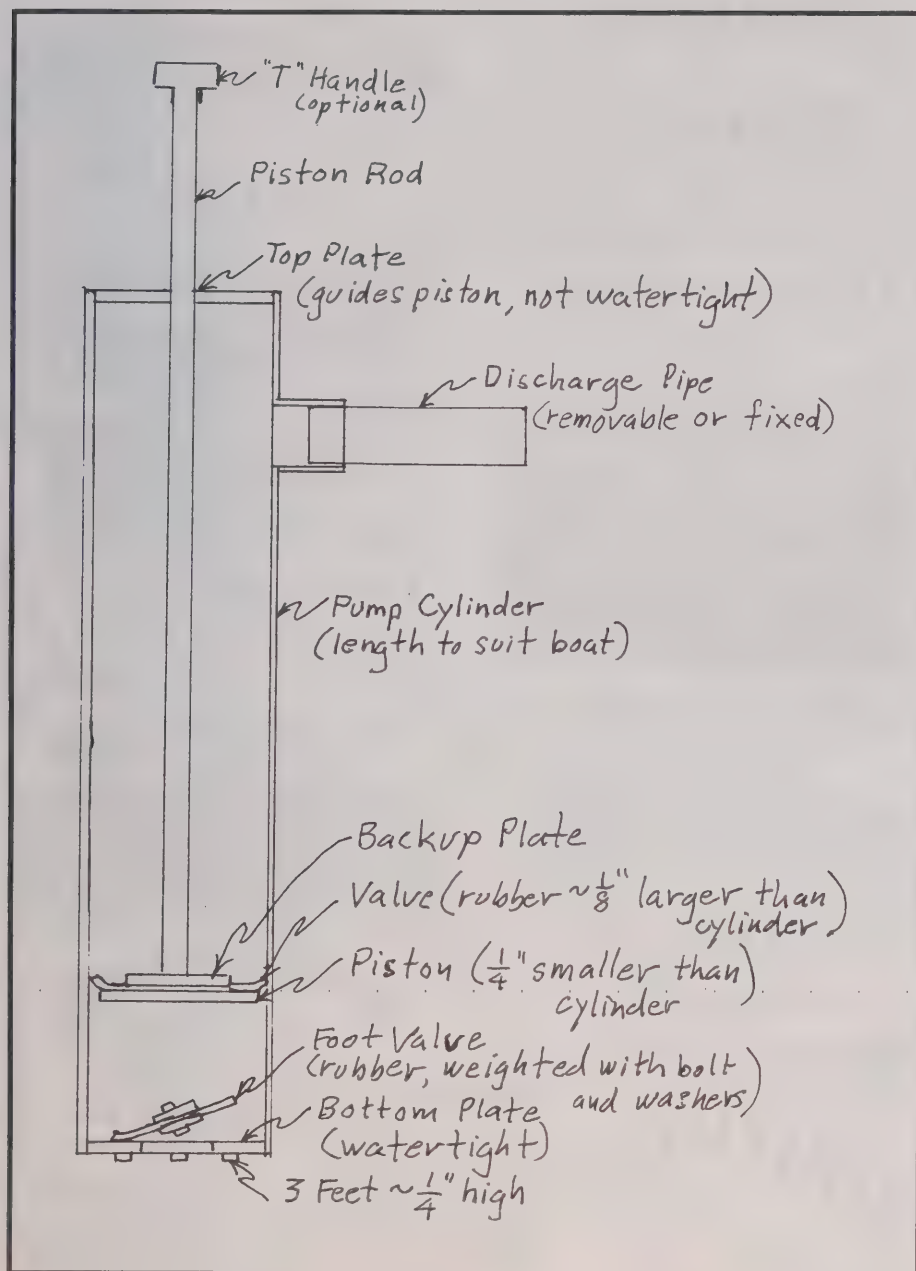 "T" Handle
(optional)
Piston Rod
Top Plate
(guides piston, not watertight)
Discharge Pipe
(removable or fixed)
Pump Cylinder
(length to suit boat)
Backup Plate
Valve (rubber ~ 1/8" larger than
cylinder)
Piston (1/4" smaller than
cylinder)
Foot Valve
(rubber, weighted with bolt
and washers)
Bottom Plate
(watertight)
3 Feet ~ 1/4" high